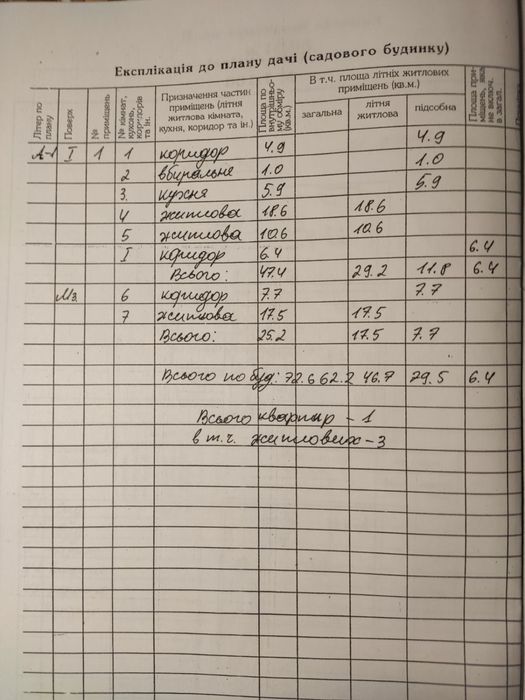 Експлікація до плану дачі (садового будинку)
Літер по плану | Поверх | № приміщень | № кімнат, кухонь, коридорів та ін. | Призначення частин приміщень (літня житлова кімната, кухня, коридор та ін.) | Площа по внутрішньому обміру (кв.м.) | В т.ч. площа літніх житлових приміщень (кв.м.) | Площа приміщень, яка не включ. в загал.
загальна | літня житлова | підсобна
А-1 I 1 1 коридор 4.9 4.9
2 вбиральне 1.0 1.0
3. кухня 5.9 5.9
4 житлова 18.6 18.6
5 житлова 10.6 10.6
I коридор 6.4 6.4
Всього: 47.4 29.2 11.8 6.4
Мз. 6 коридор 7.7 7.7
7 житлова 17.5 17.5
Всього: 25.2 17.5 7.7
Всього по буд: 72.6 62.2 46.7 29.5 6.4
Всього квартир - 1
в т.ч. житлових - 3